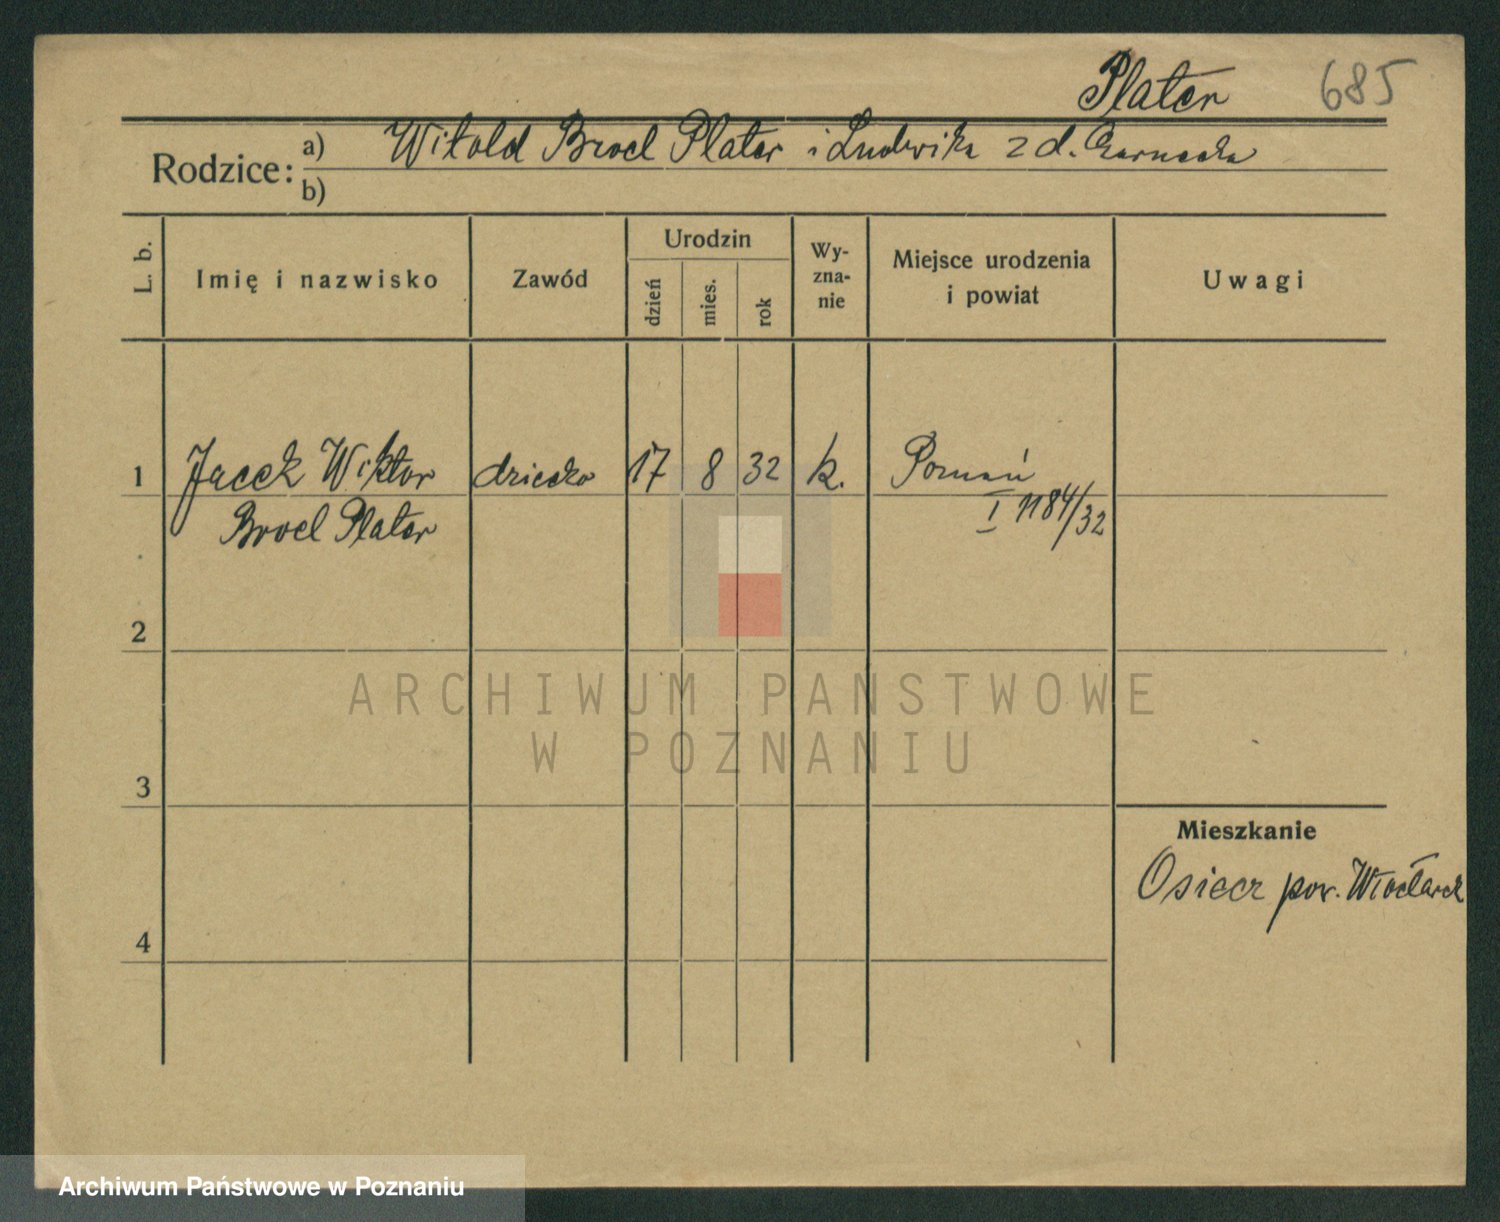 Plater 685
Rodzice:
a) Witold Broel Plater i Ludwika z d. Czarnecka
b)
L. b.
Imię i nazwisko
Zawód
Urodzin
dzień
mies.
rok
Wy-
zna-
nie
Miejsce urodzenia
i powiat
Uwagi
1 Jacek Wiktor dziecko 17 8 32 k. Poznań
Broel Plater I 1184/32
2
ARCHIWUM PAŃSTWOWE
W POZNANIU
3
Mieszkanie
Osiecz pow. Włocławek
4
Archiwum Państwowe w Poznaniu